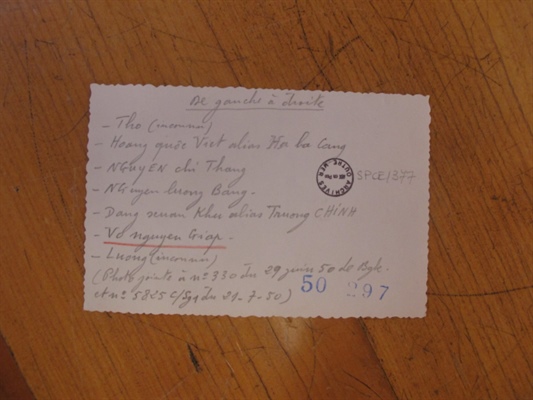 De gauche à droite
- Tho (inconnu)
- Hoang quốc Viet alias Ha ba Cang
- NGUYEN chi Thang
- NGuyen luong Bang -
- Dang xuan Khu alias Truong CHINH
- Vo nguyen Giap -
- Luong (inconnu)
(Photo jointe à n° 330 du 29 juin 50 de
et n° 5825 C/Sg du 29-7-50)
50 297
ARCHIVES
OUTRE-MER
SPCE/377